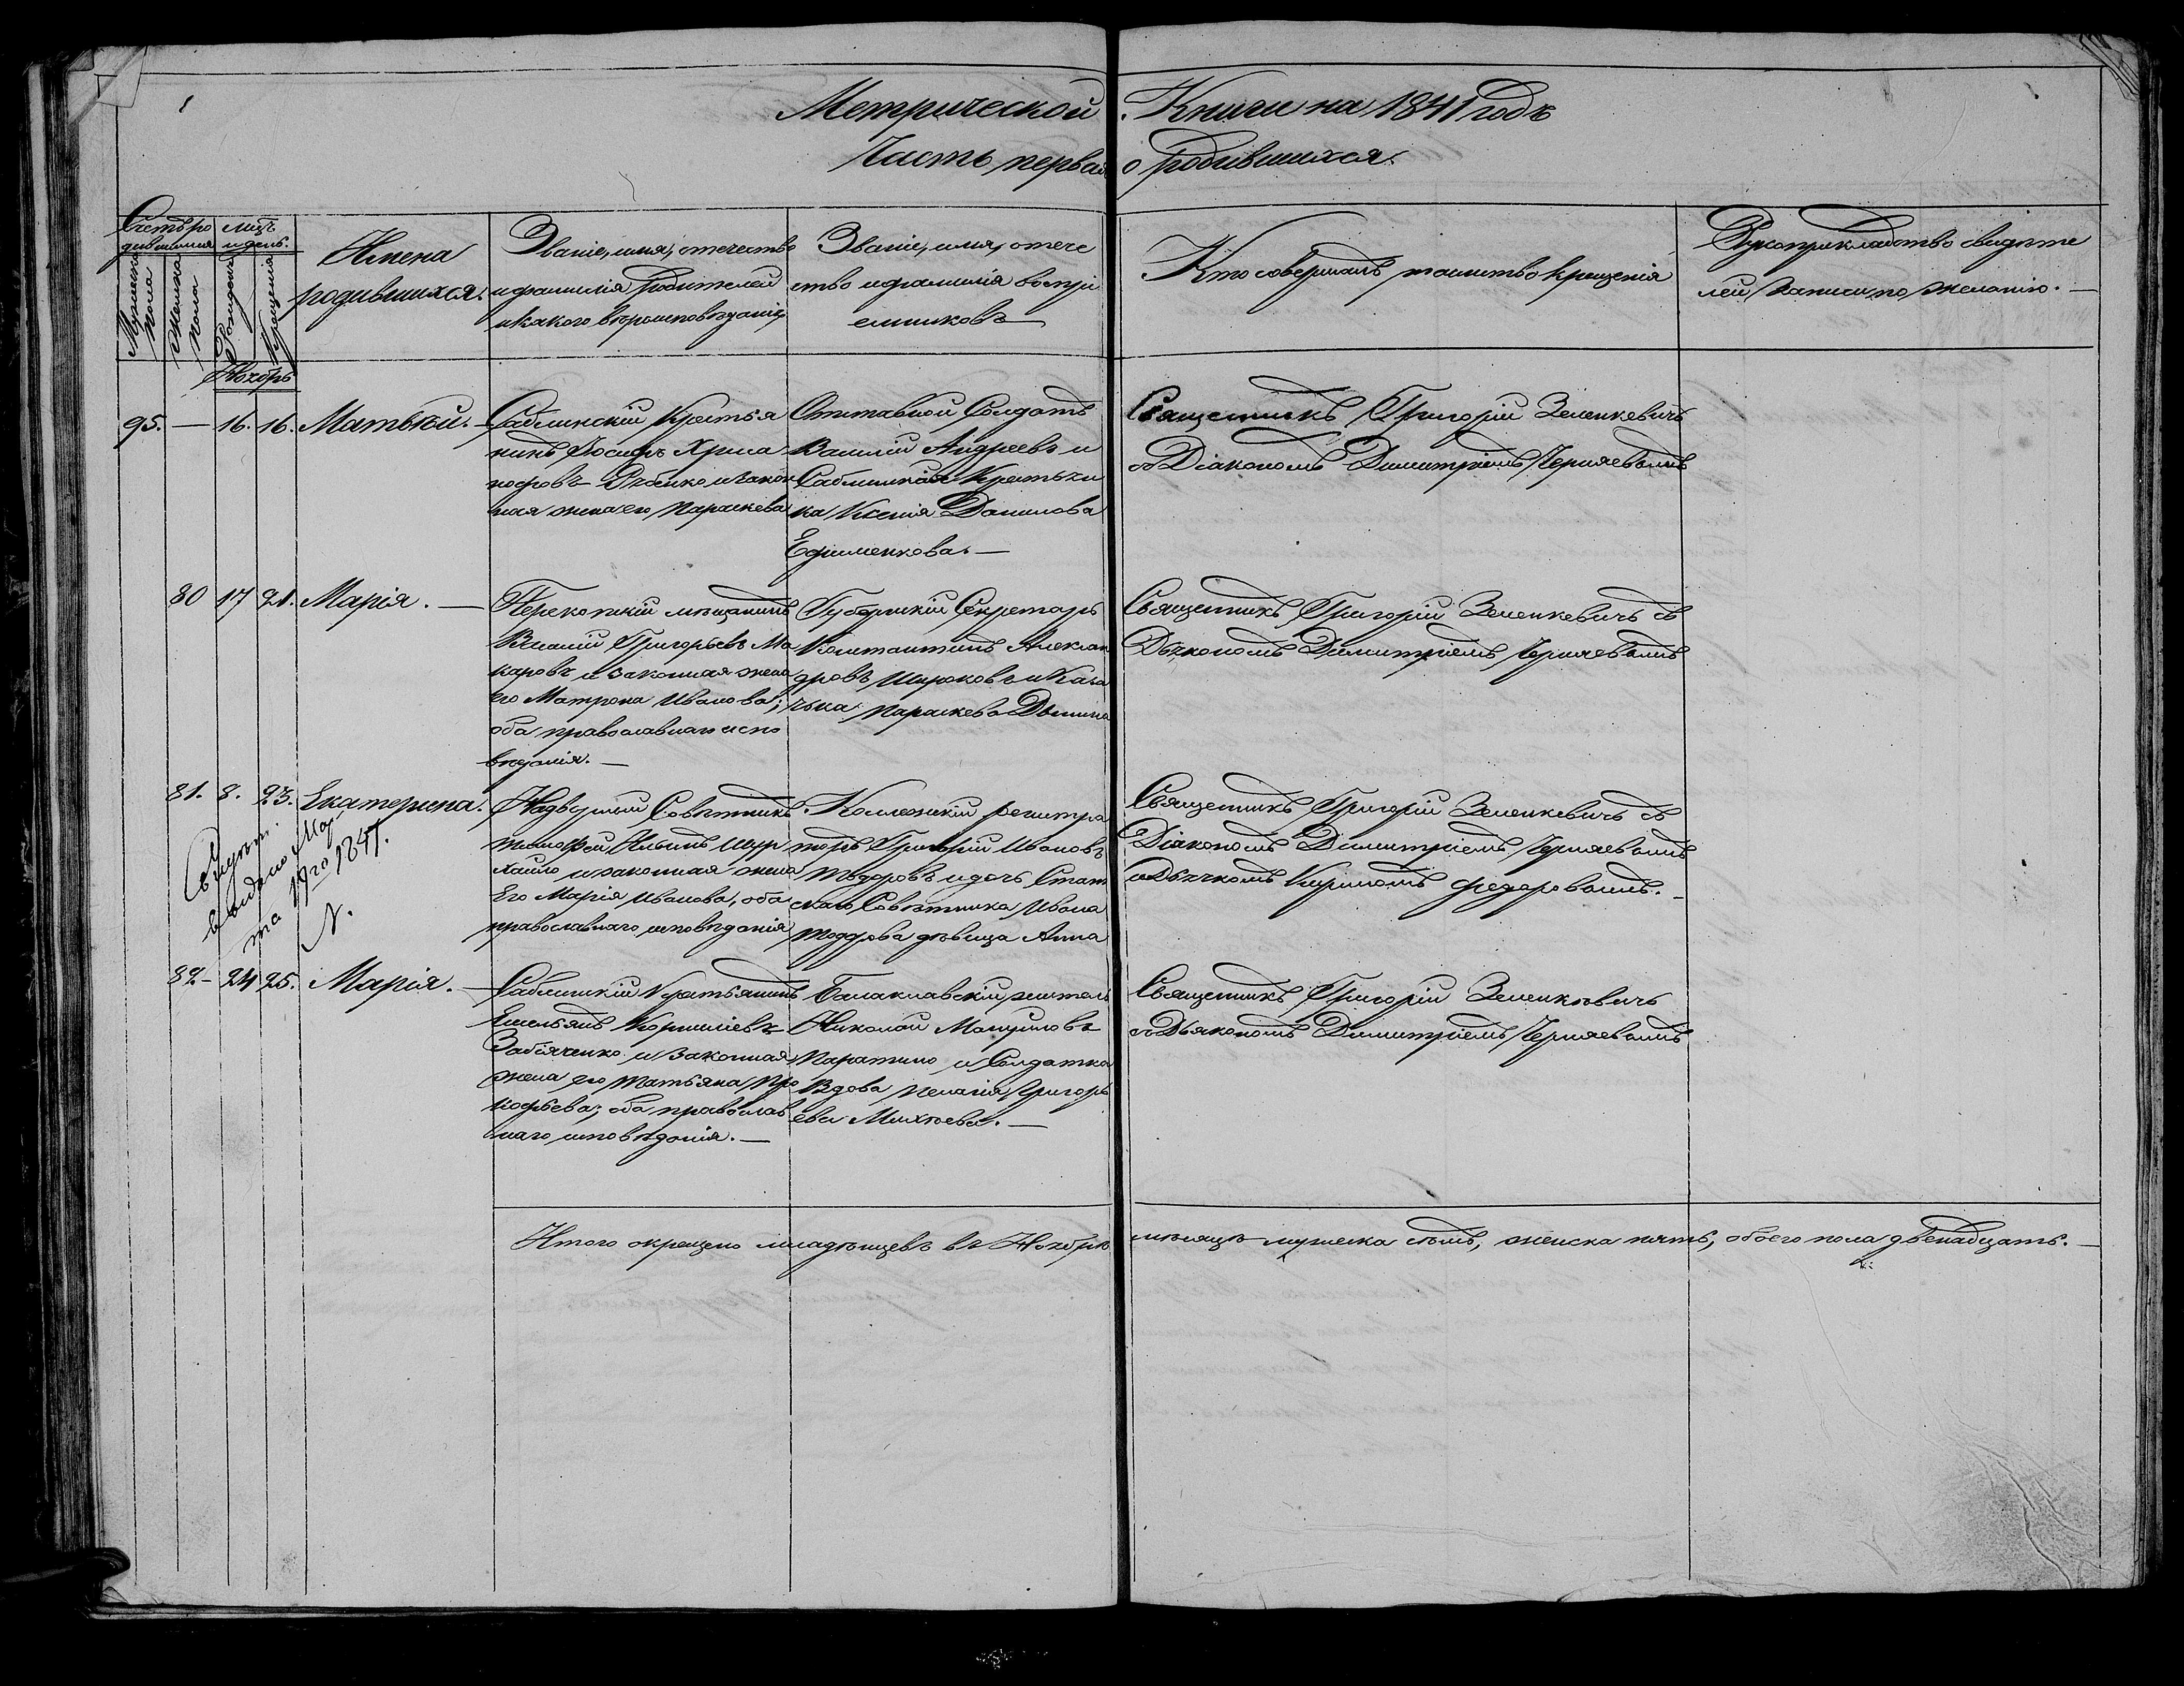 Метрической Книги на 1841 годъ
Часть первая о родившихся.
Счетъ ро
дившихся
Мужеска
пола
Женска
пола
м-цъ
и день.
Рожденія
Крещенія
Имена
родившихся.
Званіе, имя, отечество
и фамилія Родителей
и какого вѣроисповѣданія,
Званіе, имя, отече
ство и фамилія воспрі
емниковъ
Кто совершалъ таинство крещенія
Рукоприкладство свидѣте
лей записи по желанію. —
Ноябрь
95. — 16. 16. Матвѣй. —
Саблинскій Крестья
нинъ Іосифъ
жена его Параскева
Отставной Солдатъ
Василій Андреевъ и
Саблинская Крестьян
ка Ксенія Данилова
Ефименкова. —
Священникъ Григорій Зеленкевичъ
съ Діакономъ Димитріемъ Черняевымъ
80 17 21. Марія. —
Перекопскій мѣщанинъ
Василій Григорьевъ Ма
каровъ и законная жена
его Матрона Иванова;
оба православнаго испо
вѣданія. —
Губернскій Секретарь
Константинъ Алексан
дровъ Широковъ и
Параскева
Священникъ Григорій Зеленкевичъ съ
Дьякономъ Димитріемъ Черняевымъ
81. 8. 23. Екатерина.
выдано Мар
та 19го 1847.
Надворный Совѣтникъ
Тимофей Ильинъ
и законная жена
Его Марія Иванова, оба
православнаго исповѣданія
Коллежскій регистра
торъ Григорій Ивановъ
Тодоровъ и дочь Стат
скаго Совѣтника Ивана
Тодорова дѣвица Анна
Священникъ Григорій Зеленкевичъ съ
Діакономъ Димитріемъ Черняевымъ
и Дьячкомъ Федоровымъ. —
82 — 24 25. Марія. —
Саблинскій Крестьянинъ
Емельянъ Корниліевъ
Забіяченко и законная
жена его Татьяна Про
кофьева; оба православ
наго исповѣданія. —
Балаклавскій житель
Николай
и Солдатка
Вдова Пелагія Григорь
ева Михѣева. —
Священникъ Григорій Зеленкевичъ
съ Дьякономъ Димитріемъ Черняевымъ
Итого окрещено младенцевъ въ Ноябрѣ мѣсяцѣ мужеска семь, женска пять, обоего пола двенадцать. —